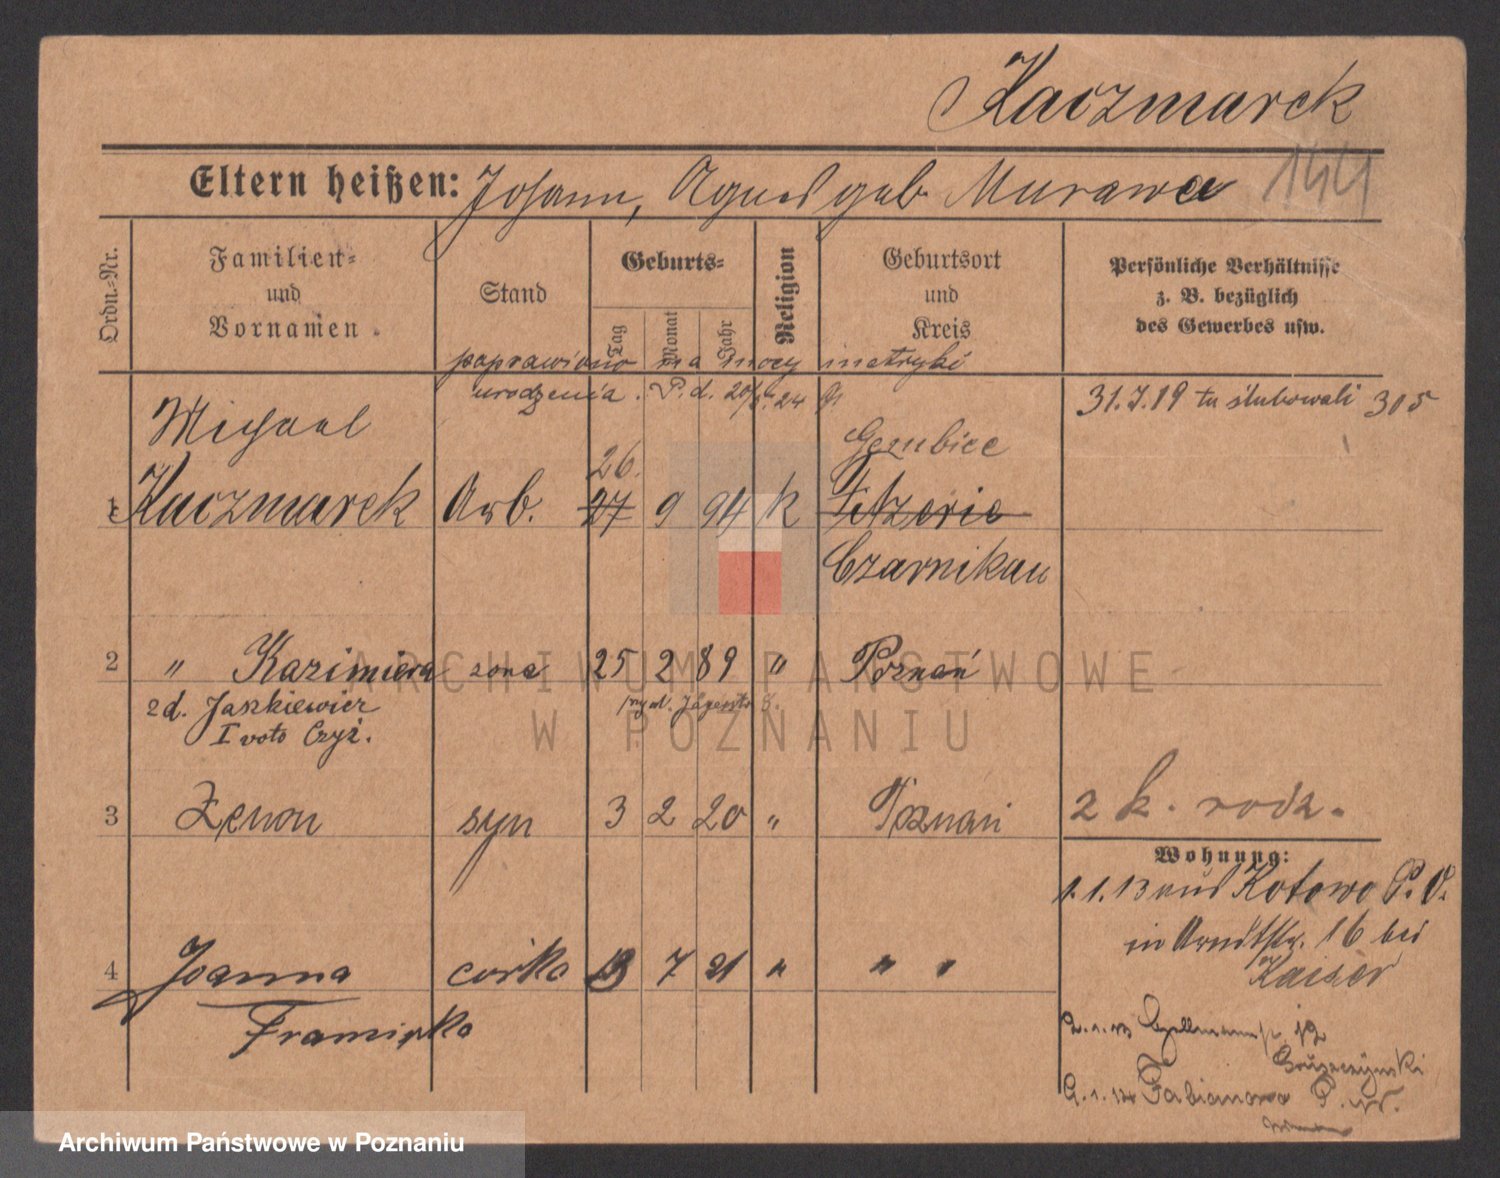 Kaczmarek
Eltern heißen: Johann, Agnes geb Murawa
144
Ordn.-Nr.
Familien- und Vornamen
Stand
Geburts-
Tag
Monat
Jahr
Religion
Geburtsort und Kreis
Persönliche Verhältnisse
z. B. bezüglich
des Gewerbes usw.
poprawiono na mocy metryki
urodzenia. P. d. 20/ 24
31.7.19 tu ślubowali 305
Michael
26.
Gembice
1 Kaczmarek Arb. 27 9 94 k
Czarnikau
2 " Kazimiera żona 25 2 89 " Poznań
zd. Jaszkiewicz
I voto Czyż.
3 Zenon syn 3 2 20 " Poznań
2 k. rodz.
Wohnung:
1.1.13 aus Kotowo P. O.
in Arndtstr. 16 bei
Kaiser
4 Joanna córka 13 7 21 " " "
Franciszka
12
Gruszczynski
Fabianowo P. W.
ARCHIWUM PAŃSTWOWE
W POZNANIU
Archiwum Państwowe w Poznaniu